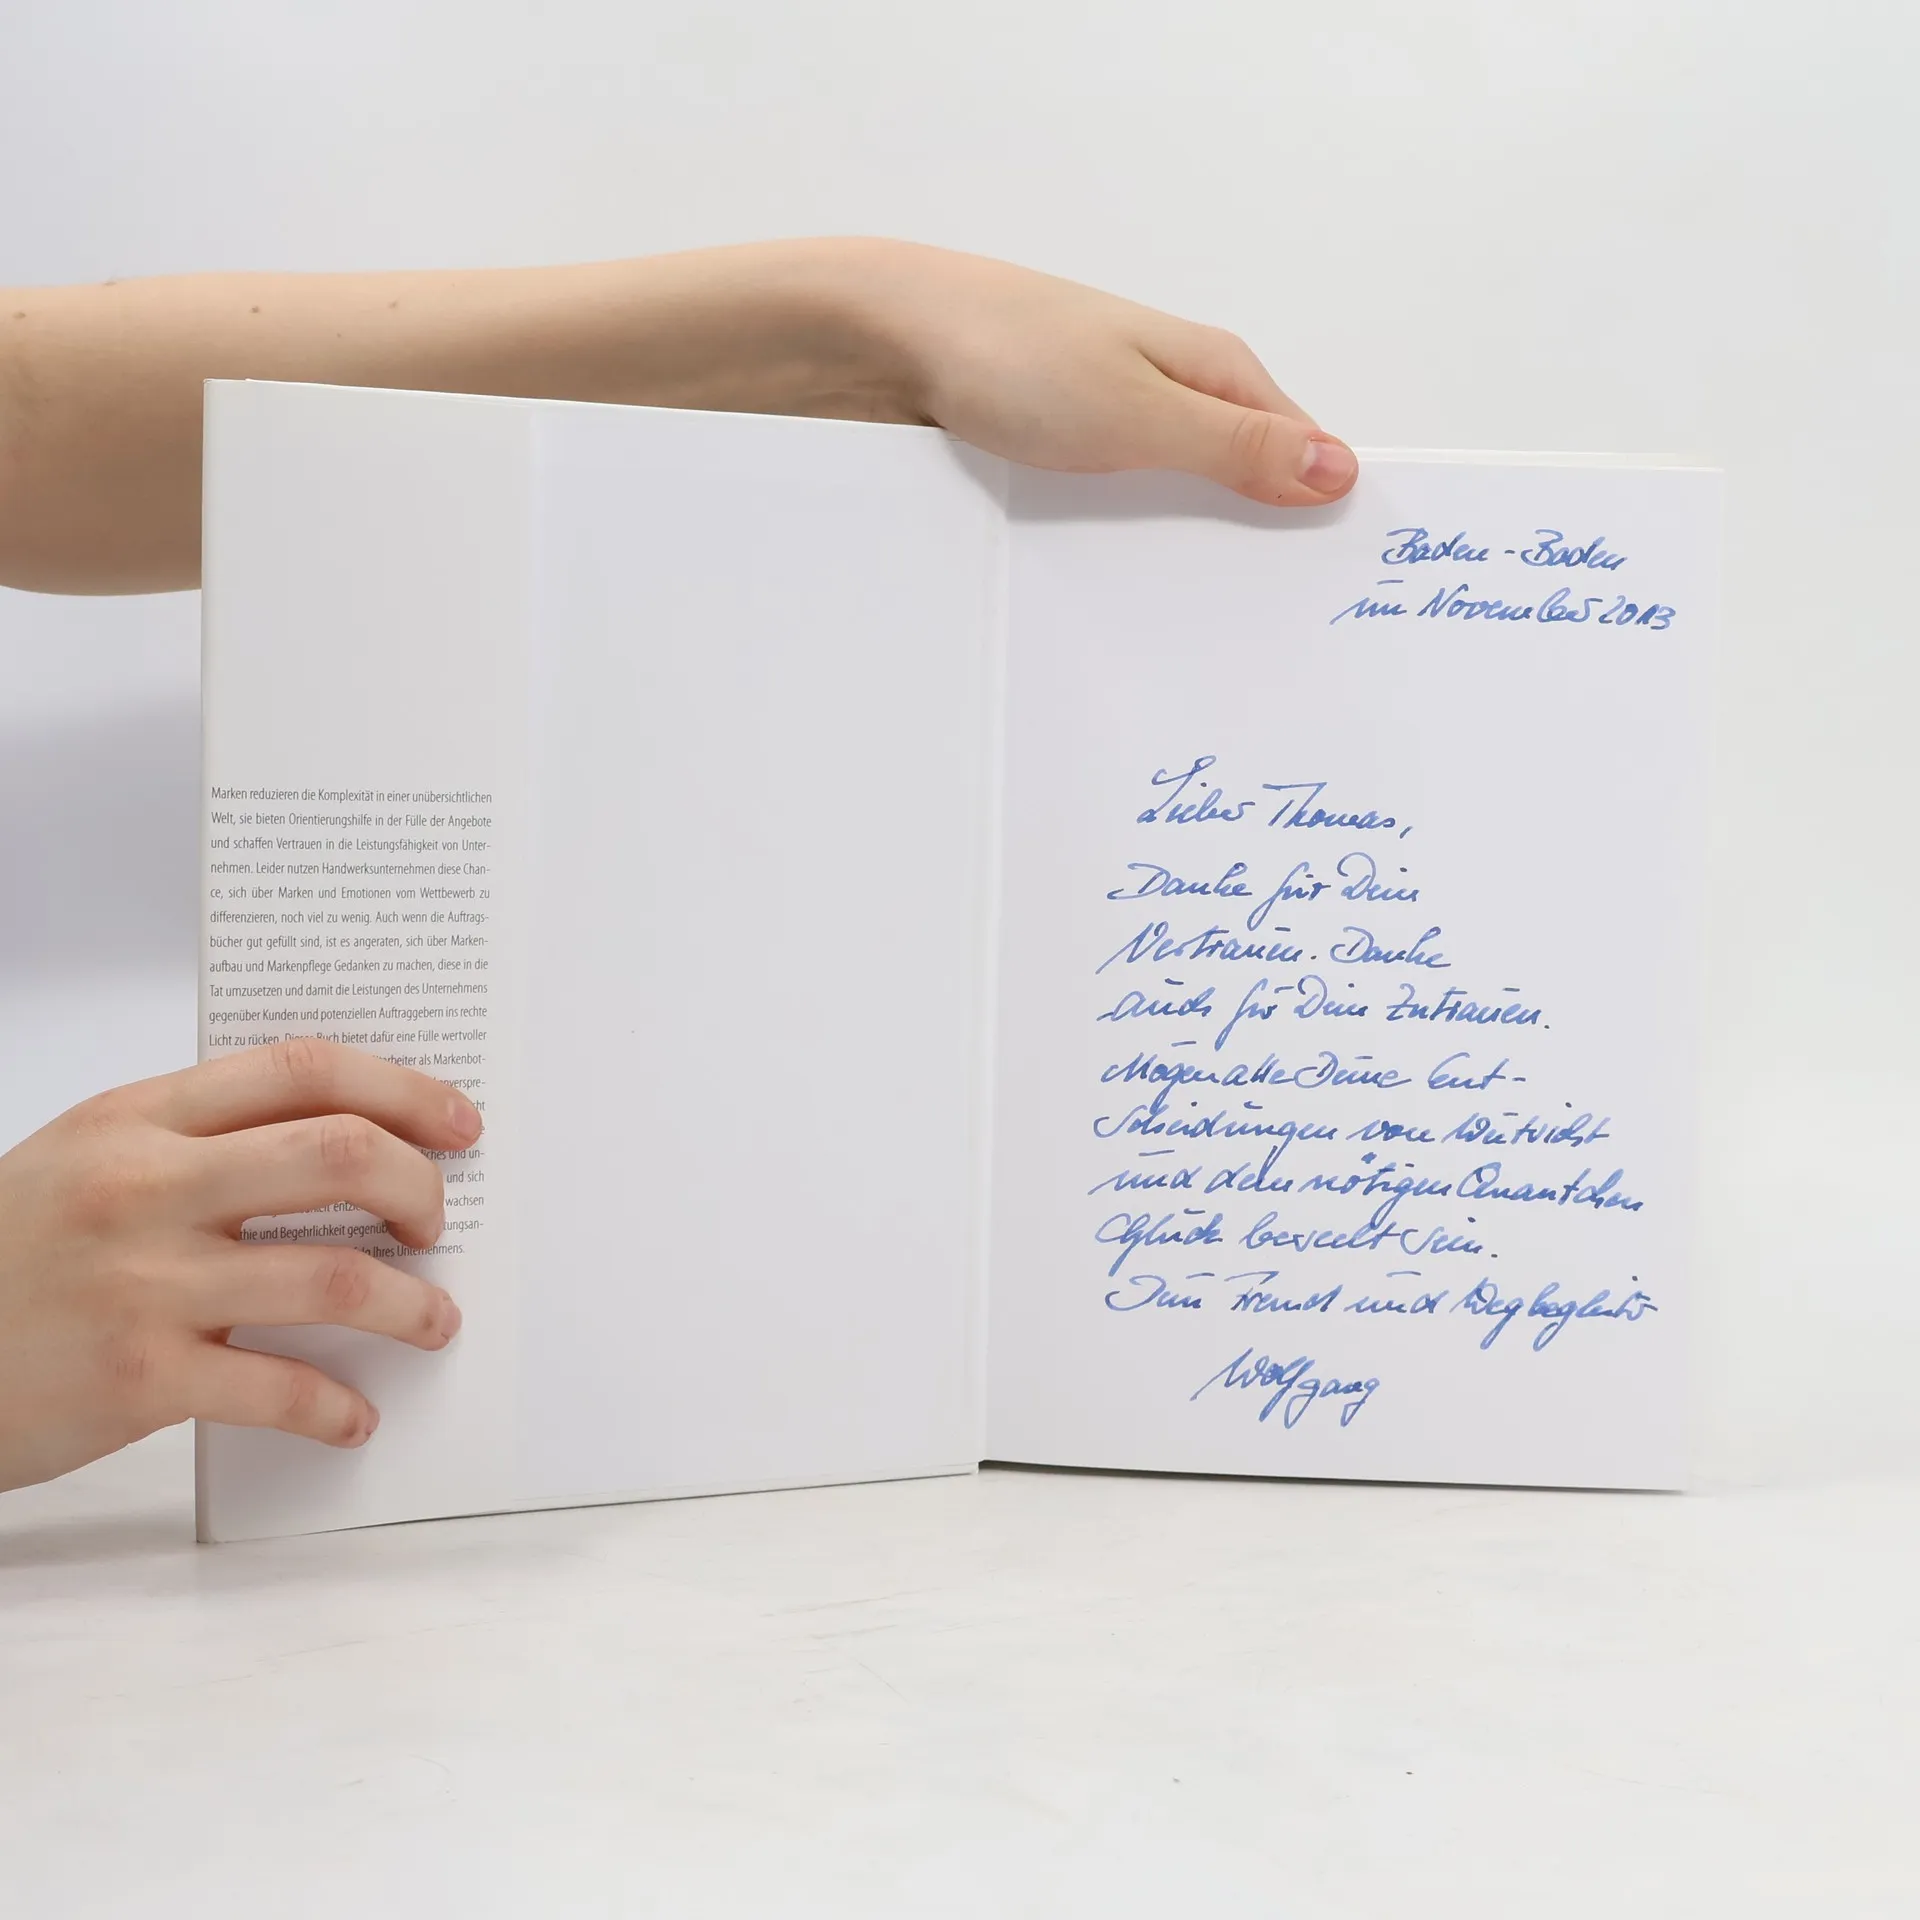 Marken reduzieren die Komplexität in einer unübersichtlichen
Welt, sie bieten Orientierungshilfe in der Fülle der Angebote
und schaffen Vertrauen in die Leistungsfähigkeit von Unter-
nehmen. Leider nutzen Handwerksunternehmen diese Chan-
ce, sich über Marken und Emotionen vom Wettbewerb zu
differenzieren, noch viel zu wenig. Auch wenn die Auftrags-
bücher gut gefüllt sind, ist es angeraten, sich über Marken-
aufbau und Markenpflege Gedanken zu machen, diese in die
Tat umzusetzen und damit die Leistungen des Unternehmens
gegenüber Kunden und potenziellen Auftraggebern ins rechte
Licht zu rücken. Dieses Buch bietet dafür eine Fülle wertvoller
als Markenbot-
und un-
und sich
wachsen
und Begehrlichkeit
Ihres Unternehmens.
Baden-Baden
im November 2013
Lieber Thomas,
Danke für Dein
Vertrauen. Danke
auch für Dein Zutrauen.
Mögen alle Deine Ent-
scheidungen von Weitsicht
und dem nötigen Quantchen
Glück beseelt sein.
Dein Freund und Wegbegleiter
Wolfgang